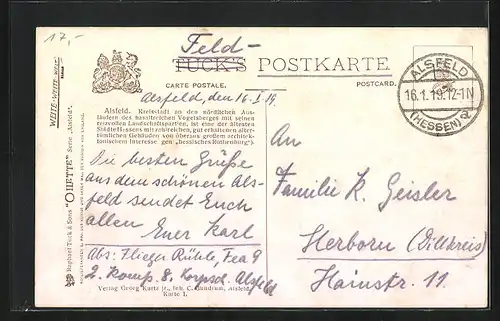 17,-
Feld-
TUCK'S POSTKARTE
CARTE POSTALE. POSTCARD.
ALSFELD
16.1.19.12-1N
(HESSEN)
Alsfeld, den 16.I.19.
Alsfeld. Kreisstadt an den nördlichen Aus-
läufern des basalthaltigen Vogelsberges mit seinen
reizvollen Landschaftspartien, ist eine der ältesten
Städte Hessens mit zahlreichen, gut erhaltenen alter-
tümlichen Gebäuden von überaus großem architek-
tonischem Interesse gen. „hessisches Rothenburg".
Die besten Grüße
aus dem schönen Als-
feld sendet Euch
allen Euer Karl
Abs: Flieger Rühle, Fea 9
2. Komp. 8. Korpsch. Alsfeld
Verlag Georg Kartz jr., Inh. C. Gundrum, Alsfeld.
Karte I.
An
Familie K. Geisler
Herborn (Dillkreis)
Hainstr. 11
Raphael Tuck & Sons "OILETTE" Serie „Alsfeld".